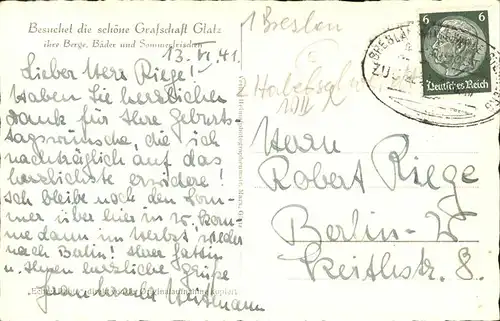 Besuchet die schöne Grafschaft Glatz
ihre Berge, Bäder und Sommerfrischen
13. VI. 41.
Lieber Herr Riege!
Haben Sie herzlichen
Dank für Ihre Geburts-
tagswünsche, die ich
nachträglich auf das
herzlichste erwidere!
Ich bleibe noch den Som-
mer über hier in W. Kom-
me dann im Herbst wieder
nach Berlin! Ihrer Gattin
u. Ihnen herzliche Grüße
1 Breslau
2 Habelschw
6 6
Deutsches Reich
BRESLAU
ZUG
Herrn
Robert Riege
Berlin-W
Keithstr. 8.